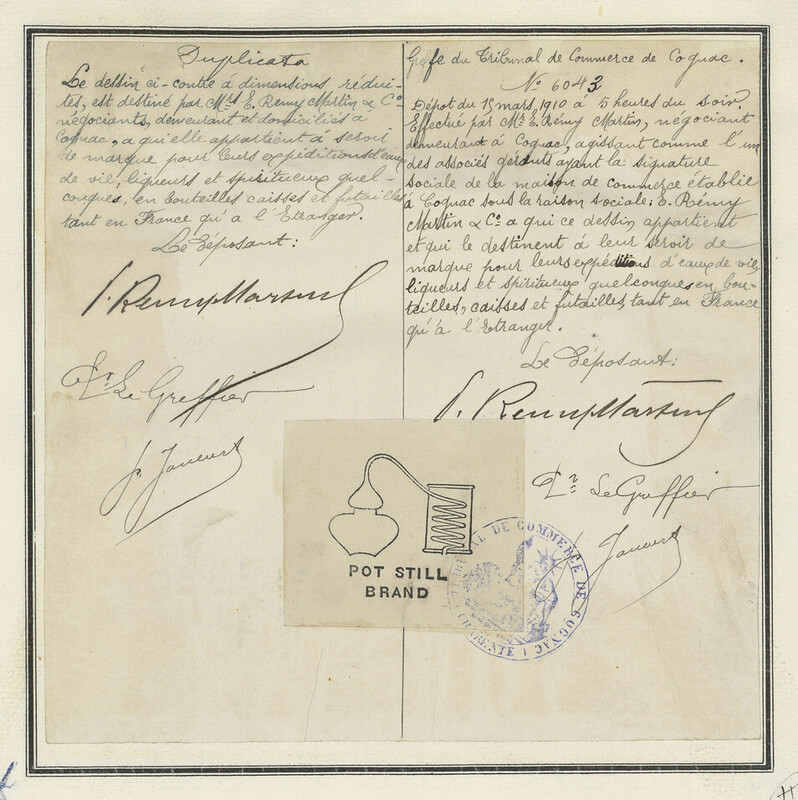 Duplicata
Le dessin ci-contre à dimensions rédui-
tes, est destiné par Mrs E. Remy Martin & Co
négociants, demeurant et domiciliés à
Cognac, a qui elle appartient à servir
de marque pour leurs expéditions d'eaux
de vie, liqueurs et spiritueux quel-
conques, en bouteilles caisses et futailles
tant en France qu'a l'Etranger.
Le Déposant:
E. Remy Martin
Le Greffier
Greffe du Tribunal de Commerce de Cognac.
No 6043
Dépot du 15 mars, 1910 à 5 heures du soir.
Effectué par Mr E. Rémy Martin, négociant
demeurant à Cognac, agissant comme l'un
des associés gérants ayant la signature
sociale de la maison de commerce établie
à Cognac sous la raison sociale: E. Rémy
Martin & Co a qui ce dessin appartient
et qui le destinent à leur servir de
marque pour leurs expéditions d'eaux de vie,
liqueurs et spiritueux quelconques en bou-
teilles, caisses et futailles, tant en France
qu'à l'Etranger.
Le Déposant:
E. Remy Martin
Le Greffier
POT STILL
BRAND
TRIBUNAL DE COMMERCE DE COGNAC
(CHARENTE)